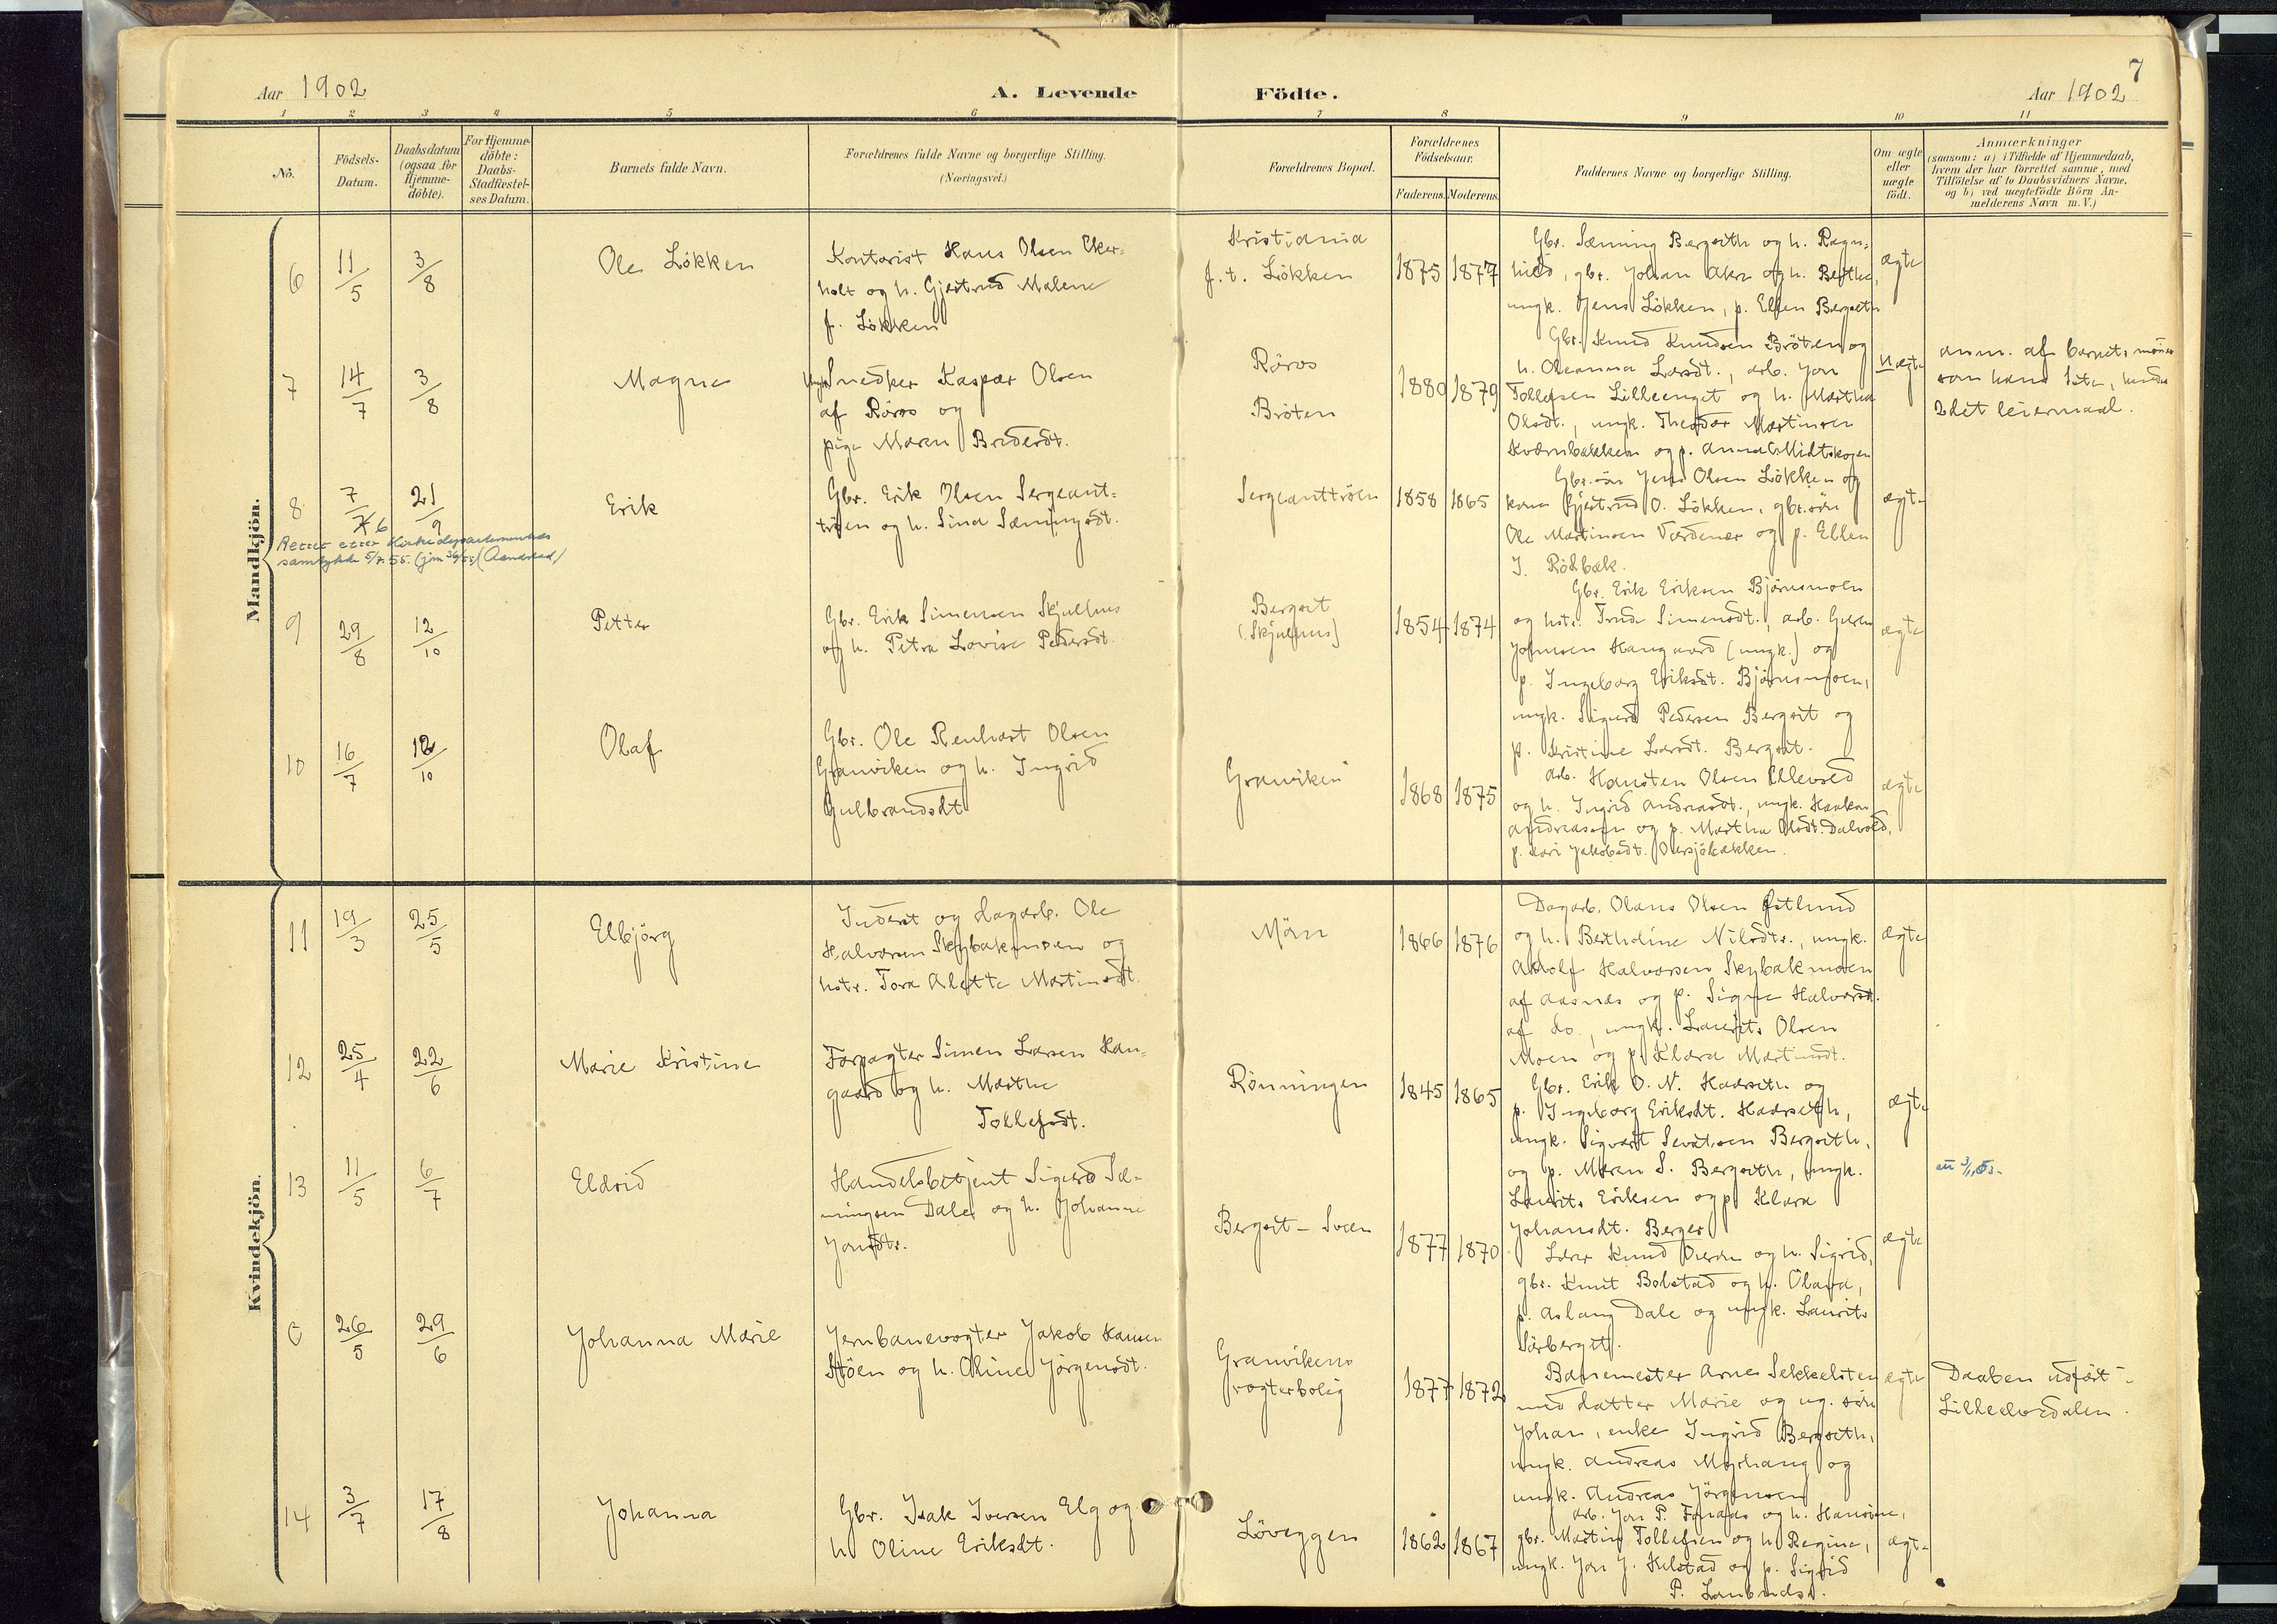 7
Aar 1902
A. Levende
Födte.
Aar 1902
1 2 3 4 5 6 7 8 9 10 11
Nö.
Födsels-
Datum.
Daabsdatum
(ogsaa for
Hjemme-
döbte).
For Hjemme-
döbte:
Daabs-
Stadfæstel-
ses Datum.
Barnets fulde Navn.
Forældrenes fulde Navne og borgerlige Stilling.
(Næringsvei.)
Forældrenes Bopæl.
Forældrenes
Födselsaar.
Faderens. Moderens.
Faddernes Navne og borgerlige Stilling.
Om ægte
eller
uægte
födt.
Anmærkninger
(saasom: a) i Tilfælde af Hjemmedaab,
hvem der har forrettet samme, med
Tilföielse af to Daabsvidners Navne,
og b) ved uægtefödte Börn An-
melderens Navn m. V.)
Mandkjön.
6
11/5
3/8
Ole Lökken
Kontorist Hans Olsen Eker-
holt og h. Gjertrud Malene
f. Lökken
Kristiania
f. t. Lökken
1875 1877
Gbr. Sæming Bergseth og h. Ragn-
hild, gbr. Johan Aker og h. Berthe,
ungk. Jens Lökken, p. Ellen Bergseth
ægte
7
14/7
3/8
Magne
Ungk. Snedker Kaspar Olsen
af Röros og
pige Maren Brederdt.
Röros
Bröten
1880 1879
Gbr. Knud Knudsen Bröten og
h. Oleanna Larsdt., arb. Jon
Tollefsen Lilleenget og h. Martha
Olsdt., ungk. Theodor Martinsen
Kværnbakken og p. Anna Midtskogen
uægte
anm. af barnets
2det leiermaal.
8
7/7 6
21/9
Erik
Gbr. Erik Olsen Sergeant-
tröen og h. Sina Sæmingsdt.
Sergeanttröen
1858 1865
Gbr.sön Jens Olsen Lökken og
kone Gjertrud O. Lökken, gbr.sön
Ole Martinsen Værdener og p. Ellen
J. Rödbæk.
ægte
Rettet etter Kirkedepartementets
samtykke 5/7.55.
9
29/8
12/10
Petter
Gbr. Erik Simensen Skjulhus
og h. Petra Lovise Pedersdt.
Bergset
(Skjulhus)
1854 1874
Gbr. Erik Eriksen Björnsmoen
og hstr. Trude Simensdt., arb.
Johnsen Haugaard (ungk.) og
p. Ingeborg Eriksdt. Björnsmoen,
ungk. Sigurd Pedersen Bergset og
p. Kristine Larsdt. Bergset.
ægte
10
16/7
12/10
Olaf
Gbr. Ole Renhart Olsen
Granviken og h. Ingrid
Gulbrandsdt
Granviken
1868 1875
arb. Hansten Olsen Ellevsed
og h. Ingrid Andreasdt., ungk. Haakon
Andreassen og p. Martha Olsdt. Dalvold,
p. Kari Jakobsdt. Oversjöbækken.
ægte
Kvindekjön.
11
19/3
25/5
Elbjörg
Inderst og dagarb. Ole
Halvorsen Skybakmoen og
hstr. Tora Alette Martinsdt.
Mörn
1866 1876
Dagarb. Olaus Olsen Östlund
og h. Bertholine Nilsdtr., ungk.
Adolf Halvorsen Skybakmoen
af Aasnes og p. Signe Halvorsdt.
af do., ungk. Laurits Olsen
Moen og p. Klara Martinsdt.
ægte
12
25/4
22/6
Marie Kristine
Forpagter Simen Larsen Hau-
gaard og h. Marthe
Tollefsdt.
Rönningen
1845 1865
Gbr. Erik O. N. Haarseth og
p. Ingeborg Eriksdt. Haarseth,
ungk. Sigvart Sevatsen Bergseth,
og p. Maren S. Bergseth, ungk.
Laurits Eriksen og p. Klara
Johansdt. Berger
ægte
13
11/5
6/7
Eldrid
Handelsbetjent Sigurd Sæ-
mingsen Dale og h. Johanne
Jonsdtr.
Bergset - Sveen
1877 1870
Lærer Knud Oieren og h. Sigrid,
gbr. Knut Bolstad og h. Olava,
p. Aslaug Dale og ungk. Laurits
Sörberget.
ægte
6
26/5
29/6
Johanna Marie
Jernbanevogter Jakob Hansen
Stöen og h. Oline Jörgensdt.
Granvikens
vogterbolig
1877 1872
Banemester Arne Sekkelsten
med datter Marie og ug. sön
Johan, enke Ingrid Bergseth,
ungk. Andreas Myrhaug og
ungk. Andreas Jörgensen
ægte
Daaben udfört i
Lilleelvedalen.
14
3/7
17/8
Johanna
Gbr. Isak Iversen Elg og
h. Oline Eriksdt.
Löveggen
1862 1867
arb. Jon P. Fonaas og h. Hansine,
gbr. Martin Tollefsen og h. Regine,
ungk. Jon J. Kilstad og p. Sigrid
P.
ægte